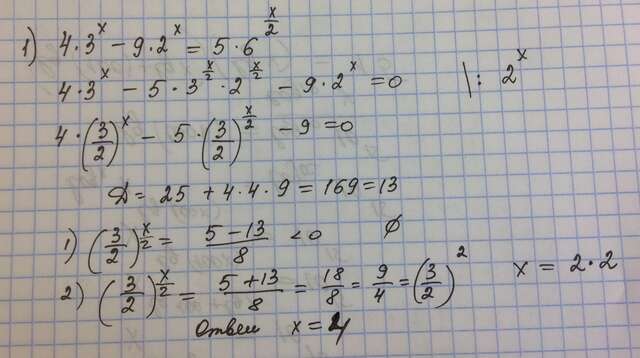 1) 4·3^x − 9·2^x = 5·6^(x/2)
4·3^x − 5·3^(x/2)·2^(x/2) − 9·2^x = 0 |: 2^x
4·(3/2)^x − 5·(3/2)^(x/2) − 9 = 0
Д = 25 + 4·4·9 = 169 = 13
1) (3/2)^(x/2) = (5−13)/8 < 0 ∅
2) (3/2)^(x/2) = (5+13)/8 = 18/8 = 9/4 = (3/2)^2 x = 2·2
Ответ x = 4